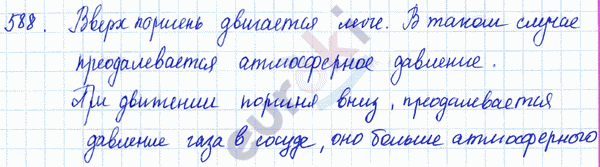 588. Вверх поршень двигается легче. В таком случае
преодалевается атмосферное давление.
При движении поршня вниз, преодалевается
давление газа в сосуде, оно больше атмосферного
euroki